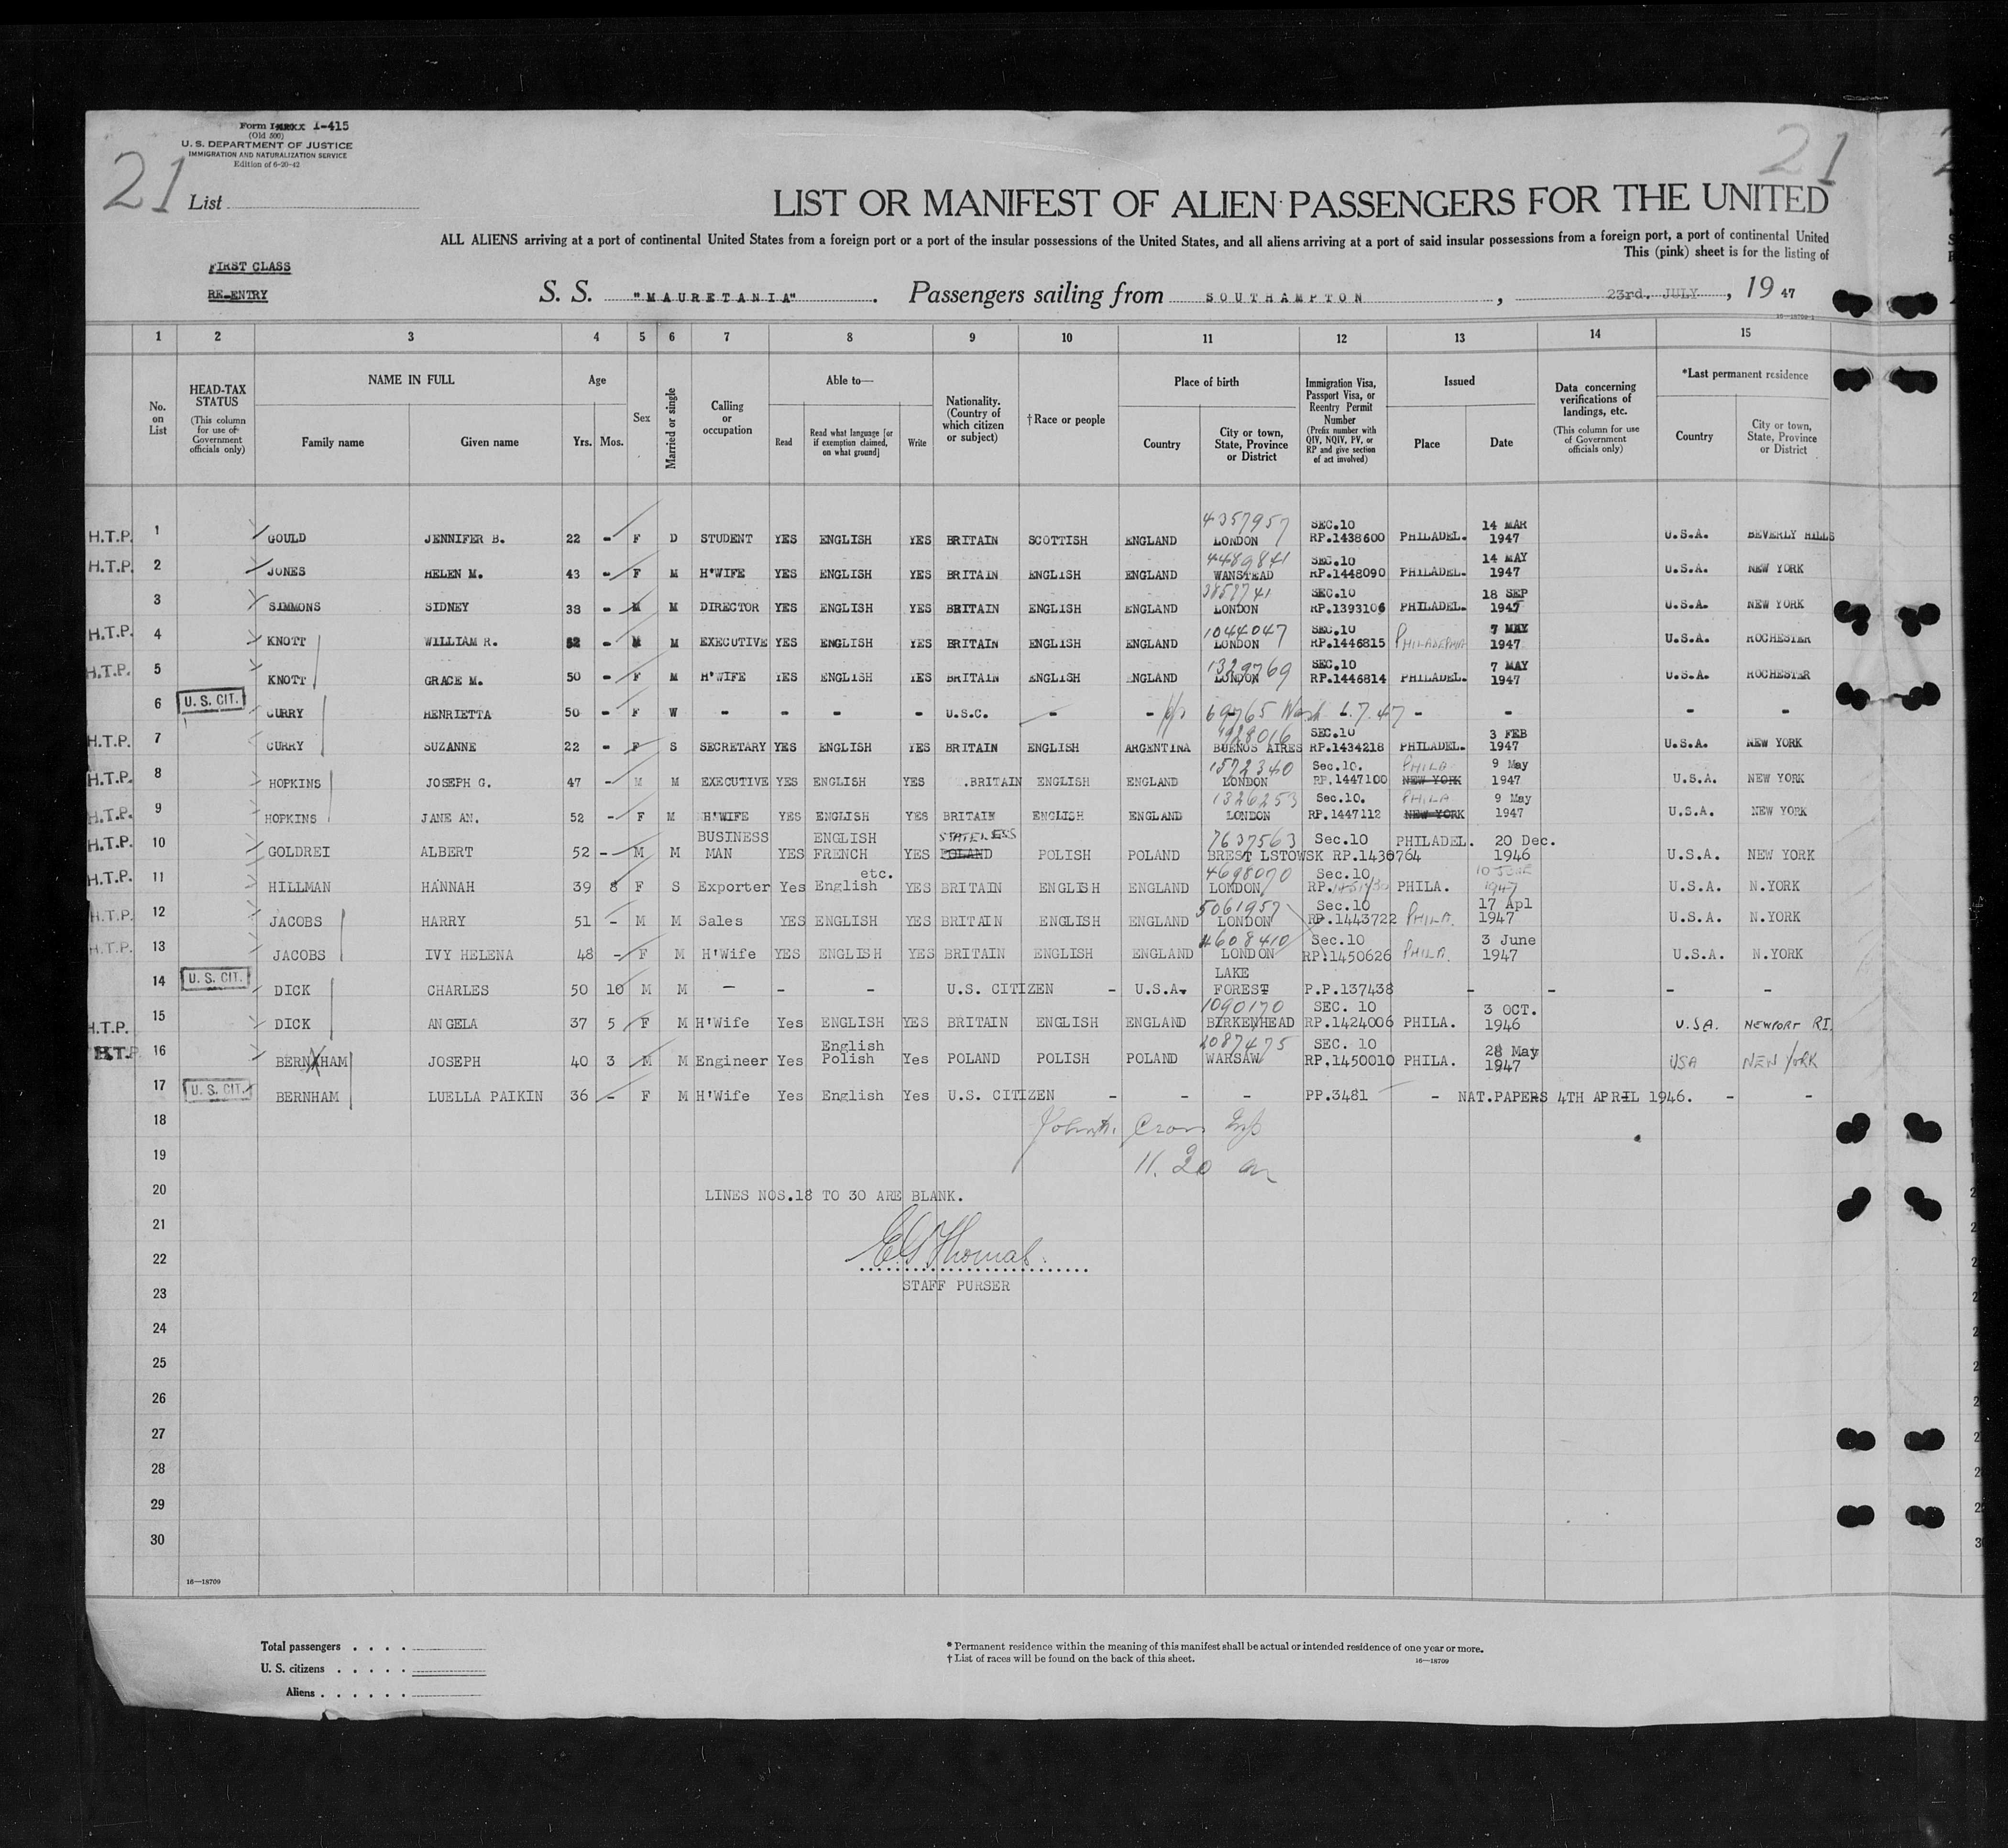 Form I-415
(Old 500)
U. S. DEPARTMENT OF JUSTICE
IMMIGRATION AND NATURALIZATION SERVICE
Edition of 6-20-42
21 List 21
LIST OR MANIFEST OF ALIEN PASSENGERS FOR THE UNITED
ALL ALIENS arriving at a port of continental United States from a foreign port or a port of the insular possessions of the United States, and all aliens arriving at a port of said insular possessions from a foreign port, a port of continental United
This (pink) sheet is for the listing of
FIRST CLASS
RE-ENTRY
S. S. "MAURETANIA" . Passengers sailing from SOUTHAMPTON , 23rd. JULY , 19 47
16-18709-1
1 2 3 4 5 6 7 8 9 10 11 12 13 14 15
No. on List
HEAD-TAX STATUS (This column for use of Government officials only)
NAME IN FULL Family name Given name
Age Yrs. Mos.
Sex
Married or single
Calling or occupation
Able to— Read Read what language [or if exemption claimed, on what ground] Write
Nationality. (Country of which citizen or subject)
†Race or people
Place of birth Country City or town, State, Province or District
Immigration Visa, Passport Visa, or Reentry Permit Number (Prefix number with QIV, NQIV, PV, or RP and give section of act involved)
Issued Place Date
Data concerning verifications of landings, etc. (This column for use of Government officials only)
*Last permanent residence Country City or town, State, Province or District
H.T.P. 1 GOULD JENNIFER B. 22 - F D STUDENT YES ENGLISH YES BRITAIN SCOTTISH ENGLAND 4357957 LONDON SEC.10 RP.1438600 PHILADEL. 14 MAR 1947 U.S.A. BEVERLY HILLS
H.T.P. 2 JONES HELEN M. 43 - F M H'WIFE YES ENGLISH YES BRITAIN ENGLISH ENGLAND 4489841 WANSTEAD SEC.10 RP.1448090 PHILADEL. 14 MAY 1947 U.S.A. NEW YORK
3 SIMMONS SIDNEY 38 - M M DIRECTOR YES ENGLISH YES BRITAIN ENGLISH ENGLAND LONDON SEC.10 RP.1393106 PHILADEL. 18 SEP 1947 U.S.A. NEW YORK
H.T.P. 4 KNOTT WILLIAM R. 52 - M M EXECUTIVE YES ENGLISH YES BRITAIN ENGLISH ENGLAND 1044047 LONDON SEC.10 RP.1446815 PHILADEPHIA 7 MAY 1947 U.S.A. ROCHESTER
H.T.P. 5 KNOTT GRACE M. 50 - F M H'WIFE YES ENGLISH YES BRITAIN ENGLISH ENGLAND 1329769 LONDON SEC.10 RP.1446814 PHILADEL. 7 MAY 1947 U.S.A. ROCHESTER
6 U. S. CIT. CURRY HENRIETTA 50 - F W - - - - U.S.C. - - 69765 Wash 6.7.47 - - - -
H.T.P. 7 CURRY SUZANNE 22 - F S SECRETARY YES ENGLISH YES BRITAIN ENGLISH ARGENTINA BUENOS AIRES SEC.10 RP.1434218 PHILADEL. 3 FEB 1947 U.S.A. NEW YORK
H.T.P. 8 HOPKINS JOSEPH G. 47 - M M EXECUTIVE YES ENGLISH YES .BRITAIN ENGLISH ENGLAND 1572340 LONDON Sec.10. RP.1447100 PHILA NEW YORK 9 May 1947 U.S.A. NEW YORK
H.T.P. 9 HOPKINS JANE AN. 52 - F M H'WIFE YES ENGLISH YES BRITAIN ENGLISH ENGLAND 1326253 LONDON Sec.10. RP.1447112 PHILA NEW YORK 9 May 1947 U.S.A. NEW YORK
H.T.P. 10 GOLDREI ALBERT 52 - M M BUSINESS MAN YES ENGLISH FRENCH etc. YES STATELESS POLAND POLISH POLAND 7637563 BREST LSTOWSK Sec.10 RP.1430764 PHILADEL. 20 Dec. 1946 U.S.A. NEW YORK
H.T.P. 11 HILLMAN HANNAH 39 8 F S Exporter Yes English YES BRITAIN ENGLISH ENGLAND 4698070 LONDON Sec.10 RP. PHILA. 10 JUNE 1947 U.S.A. N.YORK
H.T.P. 12 JACOBS HARRY 51 - M M Sales YES ENGLISH YES BRITAIN ENGLISH ENGLAND 5061957 LONDON Sec.10 RP.1443722 PHILA. 17 Apl 1947 U.S.A. N.YORK
H.T.P. 13 JACOBS IVY HELENA 48 - F M H'Wife YES ENGLISH YES BRITAIN ENGLISH ENGLAND 4608410 LONDON Sec.10 RP.1450626 PHILA. 3 June 1947 U.S.A. N.YORK
14 U. S. CIT. DICK CHARLES 50 10 M M - - - U.S. CITIZEN - U.S.A. LAKE FOREST P.P.137438 - - - -
H.T.P. 15 DICK ANGELA 37 5 F M H'Wife Yes ENGLISH YES BRITAIN ENGLISH ENGLAND 1090170 BIRKENHEAD SEC. 10 RP.1424006 PHILA. 3 OCT. 1946 U.S.A. NEWPORT RI.
H.T.P. 16 BERNXHAM JOSEPH 40 3 M M Engineer Yes English Polish Yes POLAND POLISH POLAND 2087475 WARSAW SEC. 10 RP.1450010 PHILA. 28 May 1947 USA NEW YORK
17 U. S. CIT. BERNHAM LUELLA PAIKIN 36 - F M H'Wife Yes English Yes U.S. CITIZEN - - - PP.3481 - NAT.PAPERS 4TH APRIL 1946. - -
18
19 11.20 am
20 LINES NOS.18 TO 30 ARE BLANK.
21
22 E.G Thomas.
23 STAFF PURSER
24
25
26
27
28
29
30
16—18709
Total passengers . . . .
U. S. citizens . . . . .
Aliens . . . . . .
* Permanent residence within the meaning of this manifest shall be actual or intended residence of one year or more.
† List of races will be found on the back of this sheet. 16—18709